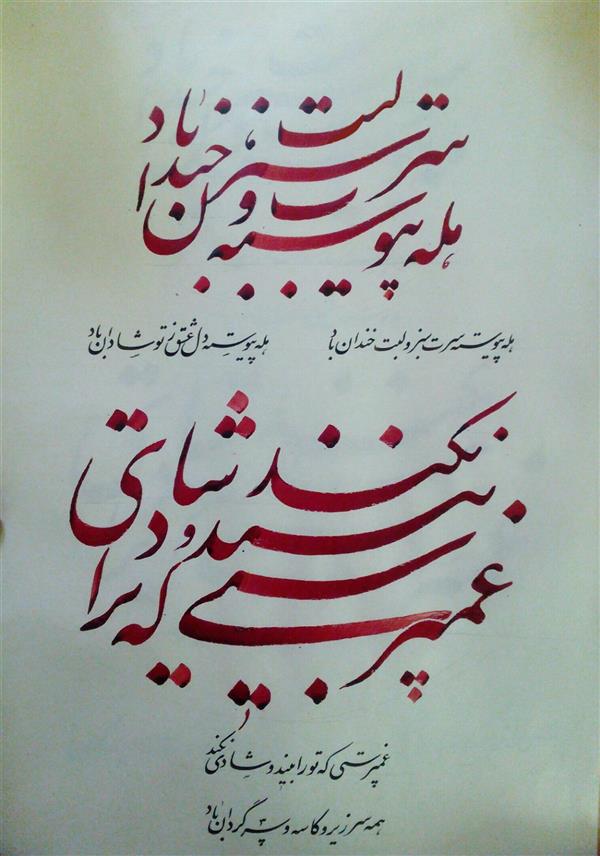 هله پیوسته سرت سبز و لبت خندان باد
هله پیوسته سرت سبز و لبت خندان باد هله پیوسته دل عشق ز تو شادان باد
غم پرستی که ترا بیند و شادی نکند
غم پرستی که تو را بیند و شادی نکند
همه سر زیر و کاسه و گردان باد